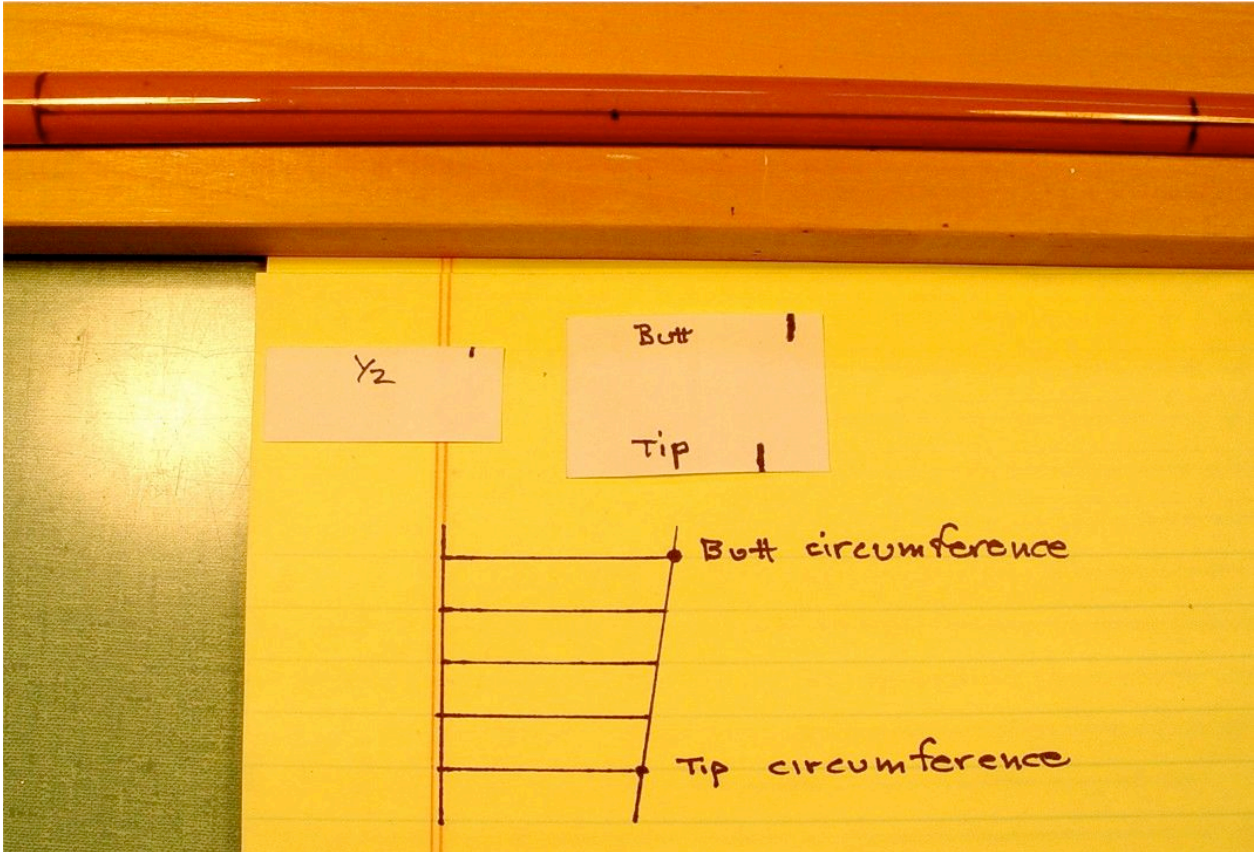 ½
Butt
Tip
Butt circumference
Tip circumference